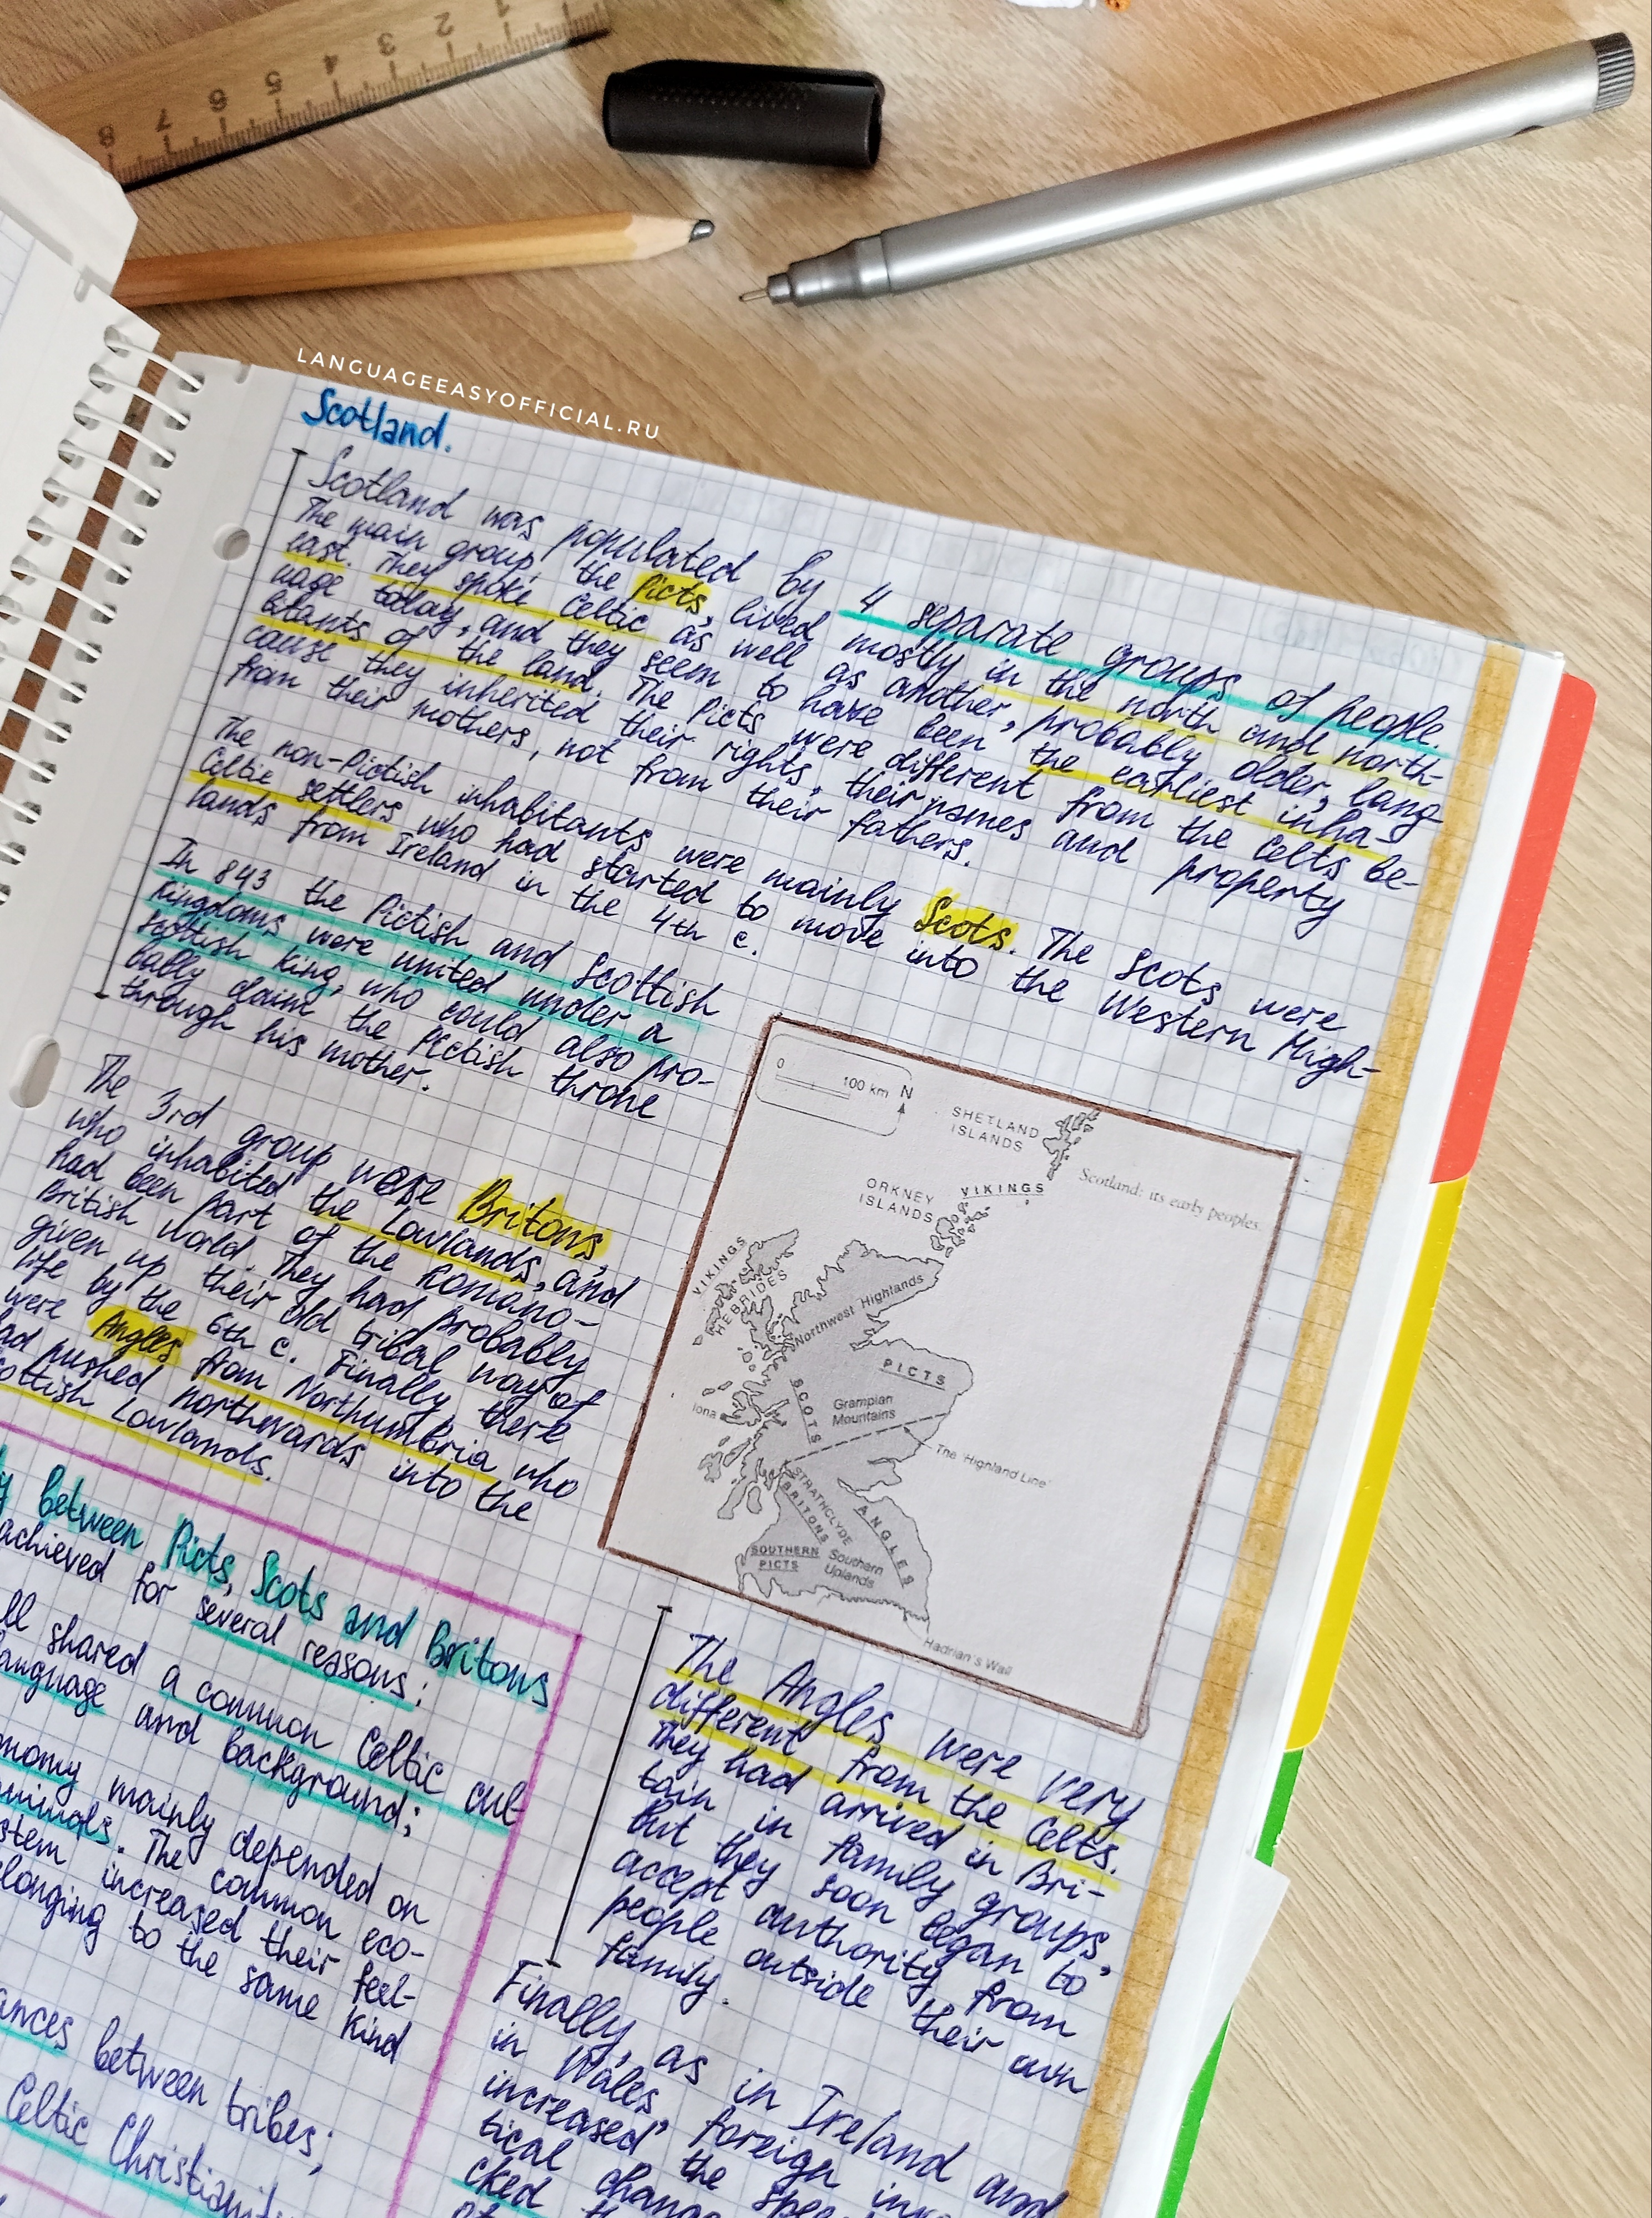 1
2
3
4
5
6
7
8
LANGUAGEEASYOFFICIAL.RU
Scotland.
Scotland was populated by 4 separate groups of people.
The main group, the Picts, lived mostly in the north and north-
east. They spoke Celtic as well as another, probably older, lang-
uage today, and they seem to have been the earliest inha-
bitants of the land. The Picts were different from the Celts be-
cause they inherited their rights, their names and property
from their mothers, not from their fathers.
The non-Pictish inhabitants were mainly Scots. The Scots were
Celtic settlers who had started to move into the Western High-
lands from Ireland in the 4th c.
In 843 the Pictish and Scottish
Kingdoms were united under a
Scottish King, who could also pro-
bably claim the Pictish throne
through his mother.
The 3rd group were Britons,
who inhabited the Lowlands, and
had been part of the Romano-
British world. They had probably
given up their old tribal way of
life by the 6th c. Finally there
were Angles from Northumbria who
had pushed northwards into the
Scottish Lowlands.
0 100 km N
SHETLAND
ISLANDS
Scotland: its early peoples.
ORKNEY
ISLANDS
VIKINGS
VIKINGS
HEBRIDES
Northwest Highlands
PICTS
SCOTS
Grampian
Mountains
Iona
The 'Highland Line'
STRATHCLYDE
BRITONS
ANGLES
SOUTHERN
PICTS
Southern
Uplands
Hadrian's Wall
between Picts, Scots and Britons
achieved for several reasons:
shared a common Celtic cul-
language and background;
mainly depended on
animals. The common eco-
increased their feel-
to the same kind
between tribes;
Celtic Christianity
The Angles were very
different from the Celts.
They had arrived in Bri-
tain in family groups,
but they soon began to
accept authority from
people outside their own
family.
Finally, as in Ireland and
in Wales, foreign
increased the
tical change
cked